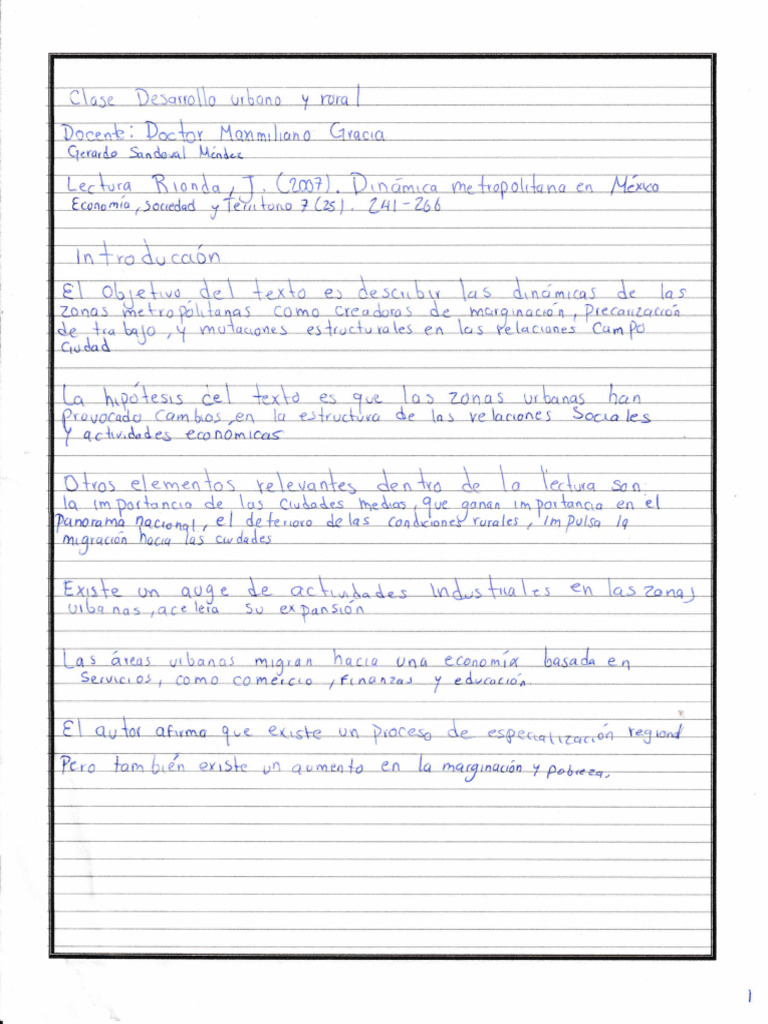 Clase Desarrollo urbano y rural
Docente: Doctor Maximiliano Gracia
Gerardo Sandoval Méndez
Lectura Rionda, J. (2007). Dinámica metropolitana en México
Economía, sociedad y Territorio 7 (25). 241-266
Introducción
El Objetivo del texto es describir las dinámicas de las
zonas metropólitanas como creadoras de marginación, Precarización
de trabajo, y mutaciones estructurales en las relaciones Campo
Ciudad
La hipótesis del texto es que las zonas urbanas han
Provocado Cambios, en la estructura de las relaciones Sociales
y actividades económicas
Otros elementos relevantes dentro de la lectura son:
la importancia de las ciudades medias, que ganan importancia en el
Panorama nacional, el deterioro de las condiciones rurales, impulsa la
migración hacia las ciudades
Existe un auge de actividades Industriales en las zonas
urbanas, acelera su expansión
Las áreas urbanas migran hacia una economía basada en
Servicios, como comercio, finanzas y educación.
El autor afirma que existe un proceso de especialización regional
Pero también existe un aumento en la marginación y pobreza.
1